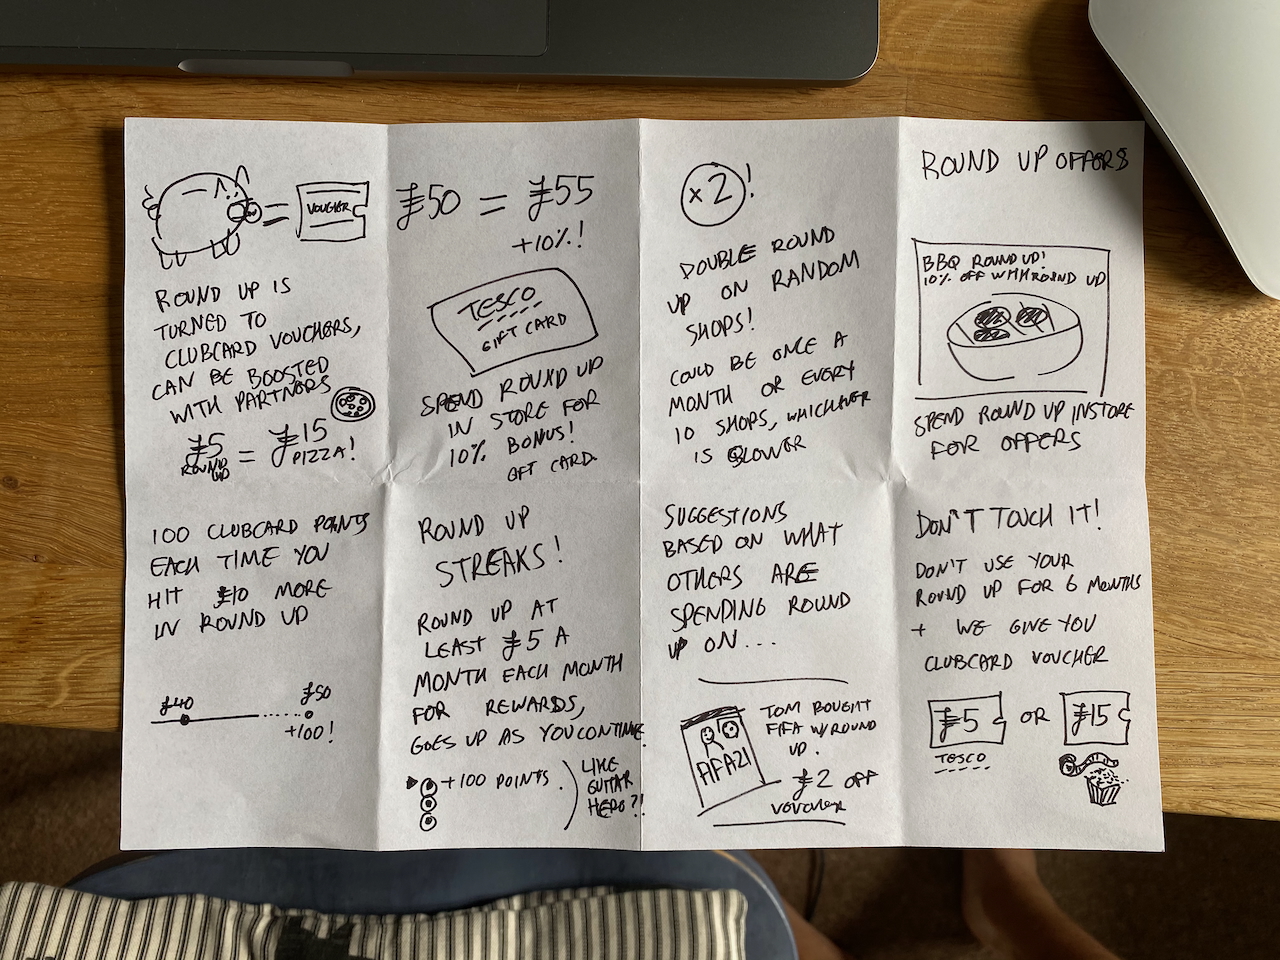 VOUCHER
ROUND UP IS
TURNED TO
CLUBCARD VOUCHERS,
CAN BE BOOSTED
WITH PARTNERS
£5 = £15
ROUND UP
PIZZA!
£50 = £55
+10%!
TESCO
GIFT CARD
SPEND ROUND UP
IN STORE FOR
10% BONUS!
GIFT CARD.
x2!
DOUBLE ROUND
UP ON RANDOM
SHOPS!
COULD BE ONCE A
MONTH OR EVERY
10 SHOPS, WHICHEVER
IS SLOWER
ROUND UP OFFERS
BBQ ROUND UP!
10% OFF WITH ROUND UP
SPEND ROUND UP INSTORE
FOR OFFERS
100 CLUBCARD POINTS
EACH TIME YOU
HIT £10 MORE
IN ROUND UP
£40
£50
+100!
ROUND UP
STREAKS!
ROUND UP AT
LEAST £5 A
MONTH EACH MONTH
FOR REWARDS,
GOES UP AS YOU CONTINUE.
+100 POINTS.
LIKE
GUITAR
HERO?!
SUGGESTIONS
BASED ON WHAT
OTHERS ARE
SPENDING ROUND
UP ON...
FIFA21
TOM BOUGHT
FIFA W/ROUND
UP.
£2 OFF
VOUCHER
DON'T TOUCH IT!
DON'T USE YOUR
ROUND UP FOR 6 MONTHS
+ WE GIVE YOU
CLUBCARD VOUCHER
£5 OR £15
TESCO